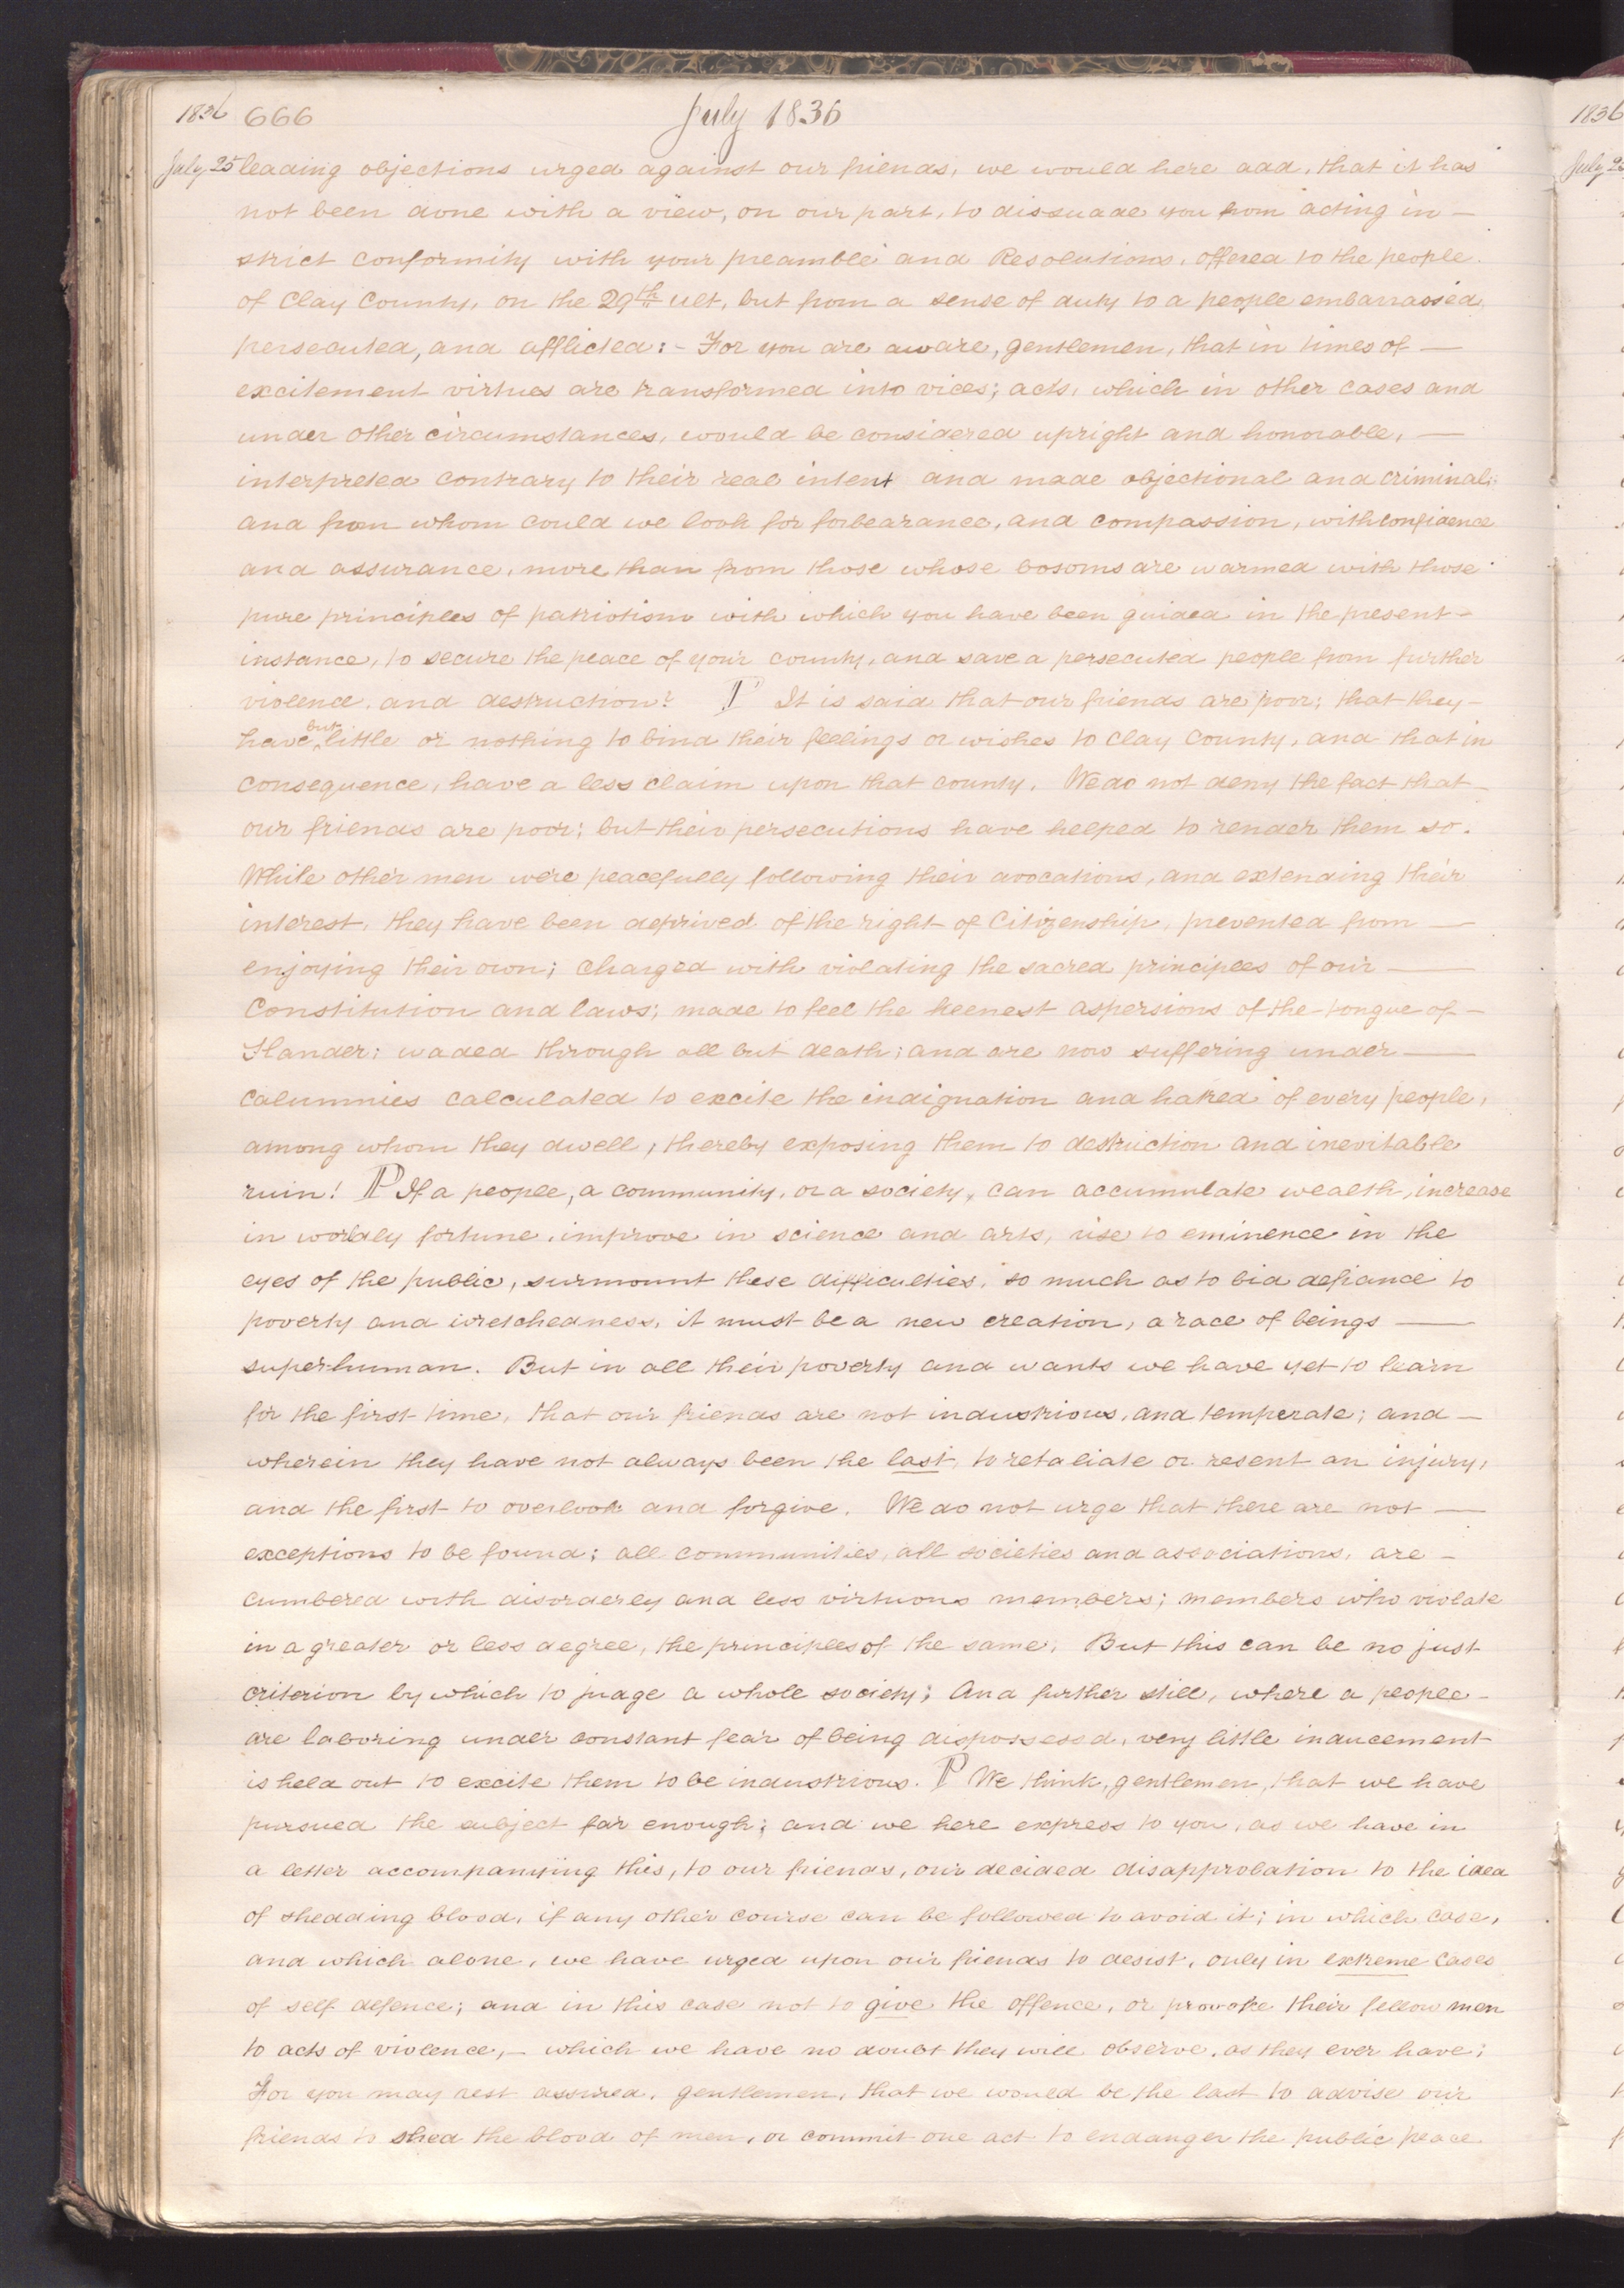 1836 666 July 1836
July 25 leading objections urged against our friends, we would here add, that it has
not been done with a view, on our part, to dissuade you from acting in —
strict conformity with your preamble and Resolutions, offered to the people
of Clay County, on the 29th ult, but from a sense of duty to a people embarrassed,
persecuted, and afflicted: – For you are aware, gentlemen, that in times of —
excitement virtues are transformed into vices; acts, which in other cases and
under other circumstances, would be considered upright and honorable, —
interpreted contrary to their real intent and made objectional and criminal;
and from whom could we look for forbearance, and compassion, with confidence
and assurance, more than from those whose bosoms are warmed with those
pure principles of patriotism with which you have been guided in the present –
instance, to secure the peace of your county, and save a persecuted people from further
violence, and destruction? P It is said that our friends are poor; that they –
have but little or nothing to bind their feelings or wishes to Clay County, and that in
consequence, have a less claim upon that county. We do not deny the fact that –
our friends are poor; but their persecutions have helped to render them so.
While other men were peacefully following their avocations, and extending their
interest, they have been deprived of the right of Citizenship, prevented from —
enjoying their own; charged with violating the sacred principles of our —
Constitution and laws; made to feel the keenest aspersions of the tongue of –
Slander; waded through all but death; and are now suffering under —
calumnies calculated to excite the indignation and hatred of every people,
among whom they dwell, thereby exposing them to destruction and inevitable
ruin! P If a people, a community, or a society, can accumulate wealth, increase
in worldly fortune, improve in science and arts, rise to eminence in the
eyes of the public, surmount these difficulties, so much as to bid defiance to
poverty and wretchedness, it must be a new creation, a race of beings —
super-human. But in all their poverty and wants we have yet to learn
for the first time, that our friends are not industrious, and temperate; and –
wherein they have not always been the last, to retaliate or resent an injury,
and the first to overlook and forgive. We do not urge that there are not —
exceptions to be found; all communities, all societies and associations, are –
cumbered with disorderly and less virtuous members; members who violate
in a greater or less degree, the principles of the same. But this can be no just
criterion by which to judge a whole society; And further still, where a people –
are laboring under constant fear of being dispossessd, very little inducement
is held out to excite them to be industrious. P We think, gentlemen, that we have
pursued the subject far enough; and we here express to you, as we have in
a letter accompanying this, to our friends, our decided disapprobation to the idea
of shedding blood, if any other course can be followed to avoid it; in which case,
and which alone, we have urged upon our friends to desist, only in extreme cases
of self defence; and in this case not to give the offence, or provoke their fellow men
to acts of violence, – which we have no doubt they will observe, as they ever have;
For you may rest assured, gentlemen, that we would be the last to advise our
friends to shed the blood of men, or commit one act to endanger the public peace.
1836
July 25